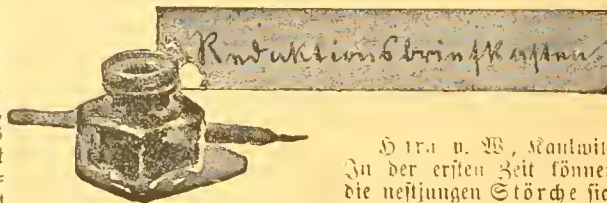 Redaktionsbriefkasten
Hrn. v. W., Kaulwitz
In der ersten Zeit können
die nestjungen Störche sich